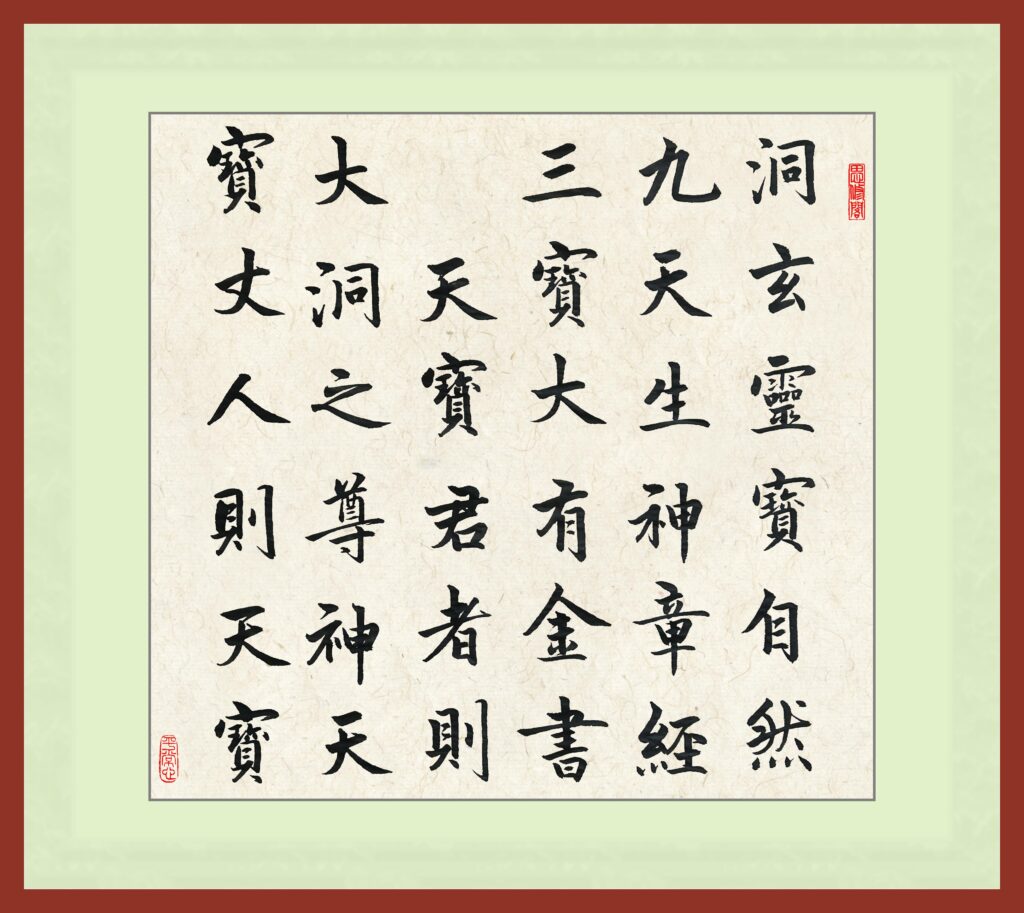 洞玄靈寶自然
九天生神章經
三寶大有金書
天寶君者則
大洞之尊神天
寶丈人則天寶